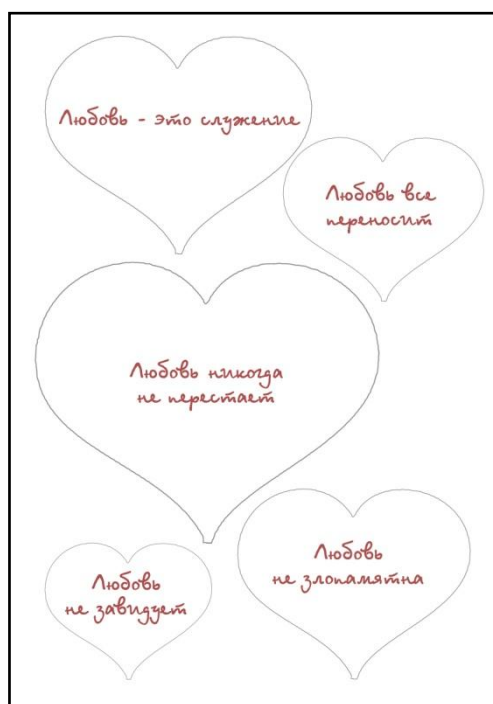 Любовь - это служение
Любовь все
переносит
Любовь никогда
не перестает
Любовь
не злопамятна
Любовь
не завидует